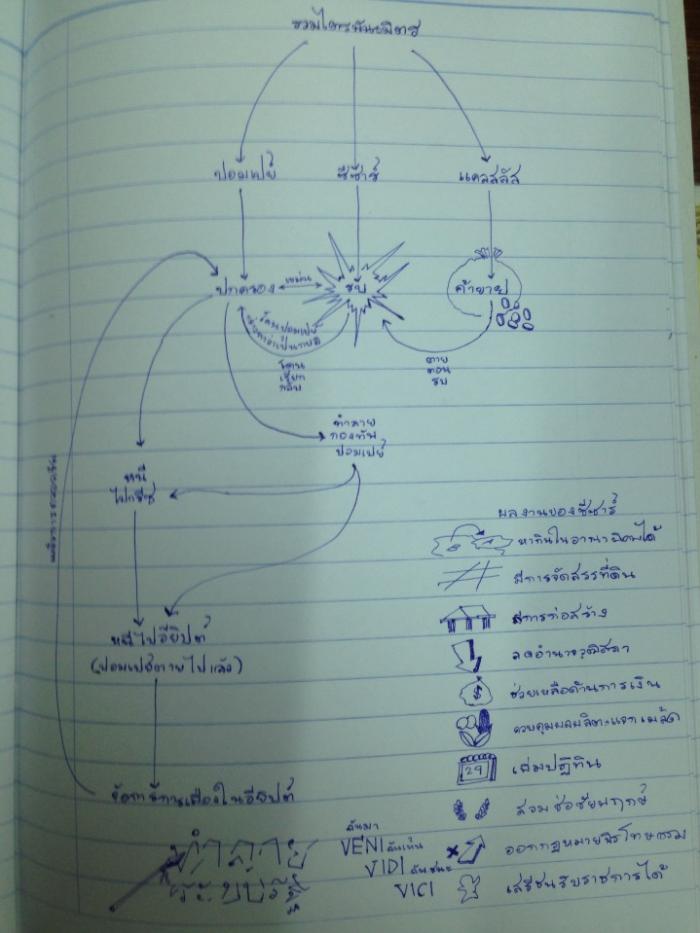 รวมไตรพันธมิตร
ปอมเปย์
ซีซาร์
แคสสัส
ปกครอง
รบ
ค้าขาย
รัฐบาลปอมเปย์
โดน
เรียก
กลับ
ตาย
ตอน
รบ
ทำลาย
กองทัพ
ปอมเปย์
หนี
ไปกรีซ
หนีไปอียิปต์
(ปอมเปย์ตายไปแล้ว)
จัดการการเมืองในอียิปต์
ทำลาย
ระบบรัฐ
ฉันมา
VENI ฉันเห็น
VIDI ฉันชนะ
VICI
ผลงานของซีซาร์
หาที่ดินในอาณานิคมได้
มีการจัดสรรที่ดิน
มีการก่อสร้าง
ลดอำนาจวุฒิสภา
$ ช่วยเหลือด้านการเงิน
ควบคุมผลผลิต+แจกเมล็ด
29 เริ่มปฏิทิน
สวมช่อชัยพฤกษ์
ออกกฎหมายจารีต
เสรีชนรับราชการได้